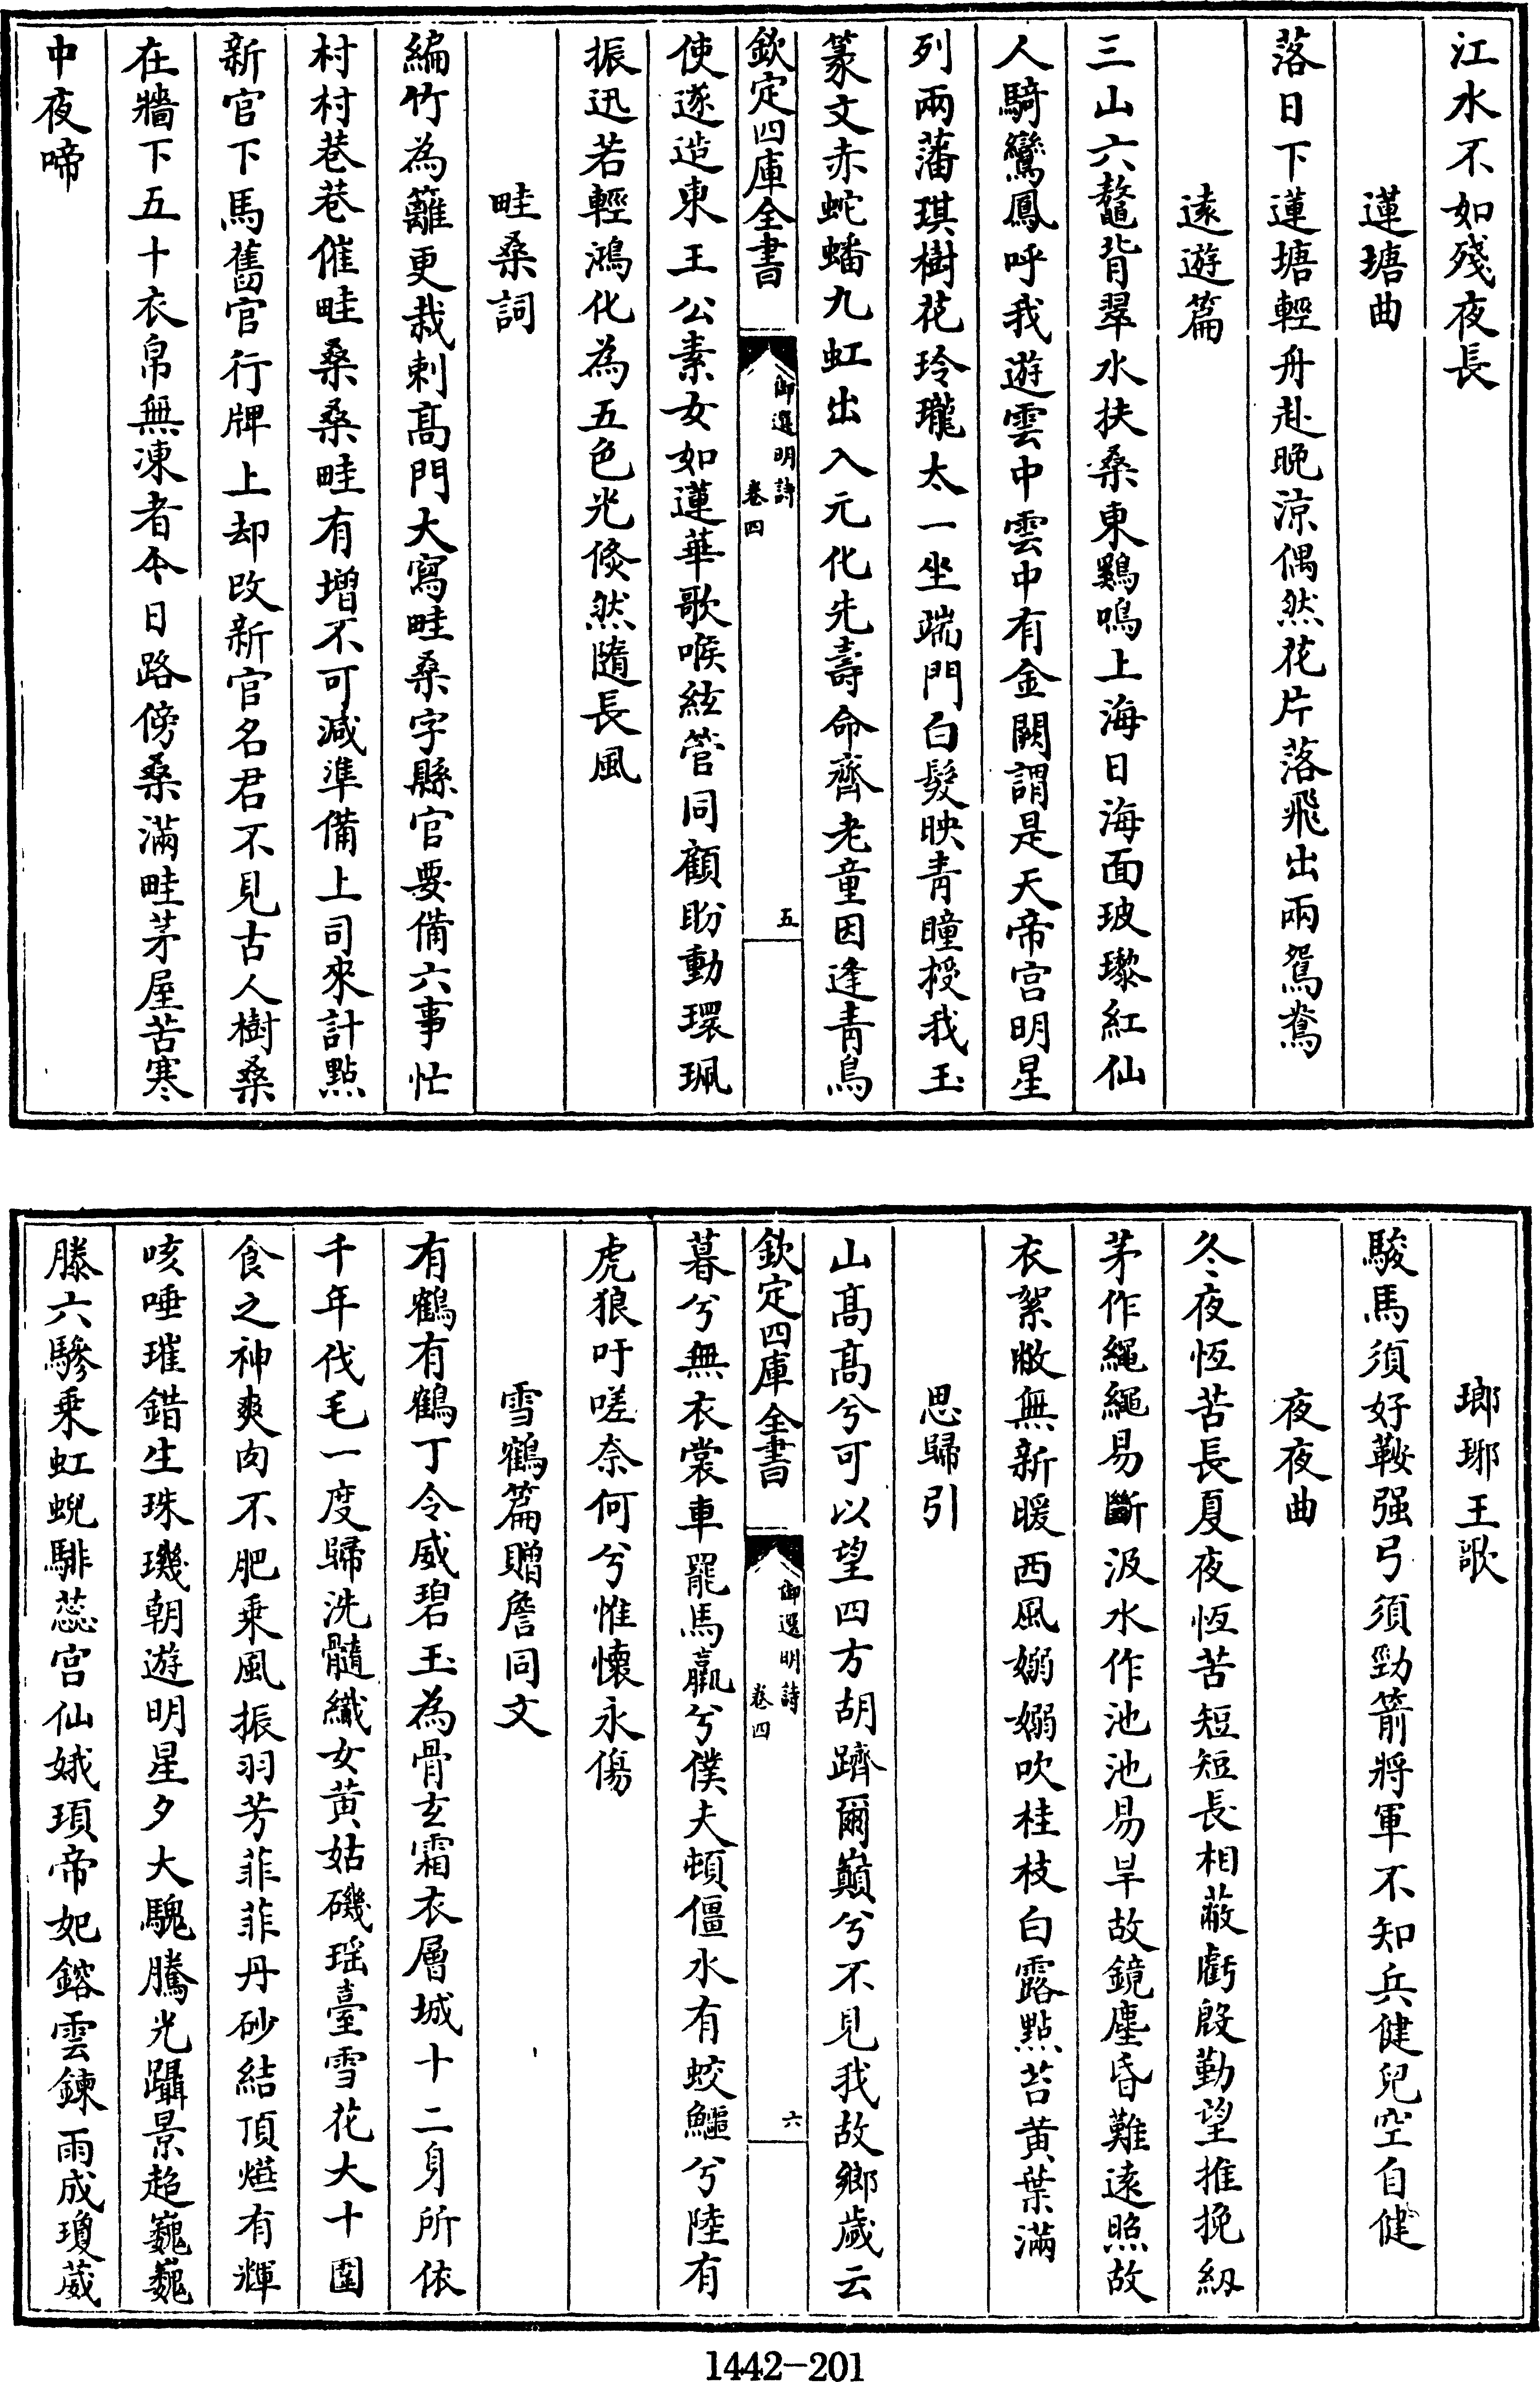 江水不如殘夜長
蓮塘曲
落日下蓮塘輕舟赴晚涼偶然花片落飛出兩鴛鴦
遠遊篇
三山六鼇背翠水扶桑東鷄鳴上海日海面玻瓈紅仙
人騎鸞鳳呼我遊雲中雲中有金闕謂是天帝宫明星
列兩藩琪樹花玲瓏太一坐端門白髮映青瞳授我玉
篆文赤蛇蟠九虹出入元化先壽命齊老童因逢青鳥
欽定四庫全書
御選明詩
卷四
五
使遂造東王公素女如蓮華歌喉絃管同顧盼動環珮
振迅若輕鴻化為五色光倐然隨長風
畦桑詞
編竹為籬更栽刺高門大寫畦桑字縣官要備六事忙
村村巷巷催畦桑桑畦有增不可減準備上司來計點
新官下馬舊官行牌上却改新官名君不見古人樹桑
在牆下五十衣帛無凍者今日路傍桑滿畦茅屋苦寒
中夜啼
瑯琊王歌
駿馬須好鞍强弓須勁箭將軍不知兵健兒空自健
夜夜曲
冬夜恆苦長夏夜恆苦短短長相蔽虧殷勤望推挽紉
茅作繩繩易斷汲水作池池易旱故鏡塵昏難遠照故
衣絮敝無新暖西風嫋嫋吹桂枝白露點苔黄葉滿
思歸引
山髙髙兮可以望四方胡躋爾巔兮不見我故鄉歲云
欽定四庫全書
御選明詩
卷四
六
暮兮無衣裳車罷馬羸兮僕夫頓僵水有蛟鱷兮陸有
虎狼吁嗟奈何兮惟懷永傷
雪鶴篇贈詹同文
有鶴有鶴丁令威碧玉為骨玄霜衣層城十二身所依
千年伐毛一度歸洗髓織女黄姑磯瑶臺雪花大十圍
食之神爽肉不肥乗風振羽芳菲菲丹砂結頂燕有輝
咳唾璀錯生珠璣朝遊明星夕大騩騰光躡景趁巍巍
滕六驂乗虹蜺騑蕊宫仙娥項帝妃鎔雲鍊雨成瓊葳
1442-201